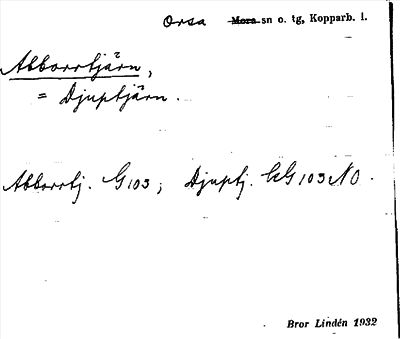 Orsa Mora sn o. tg, Kopparb. l.
Abborrtjärn,
= Djuptjärn.
Abborrtj. G103; Djuptj. kG103NO.
Bror Lindén 1932